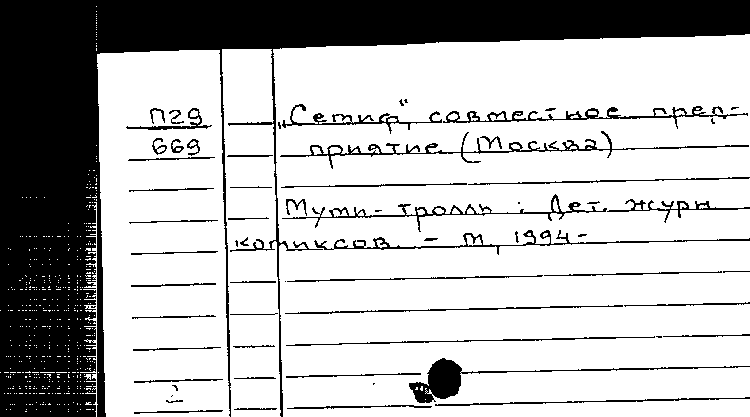 П29
669
„Сетиф“, совместное пред-
приятие (Москва)
Муми-тролль : Дет. журн.
комиксов. – М., 1994 –
2